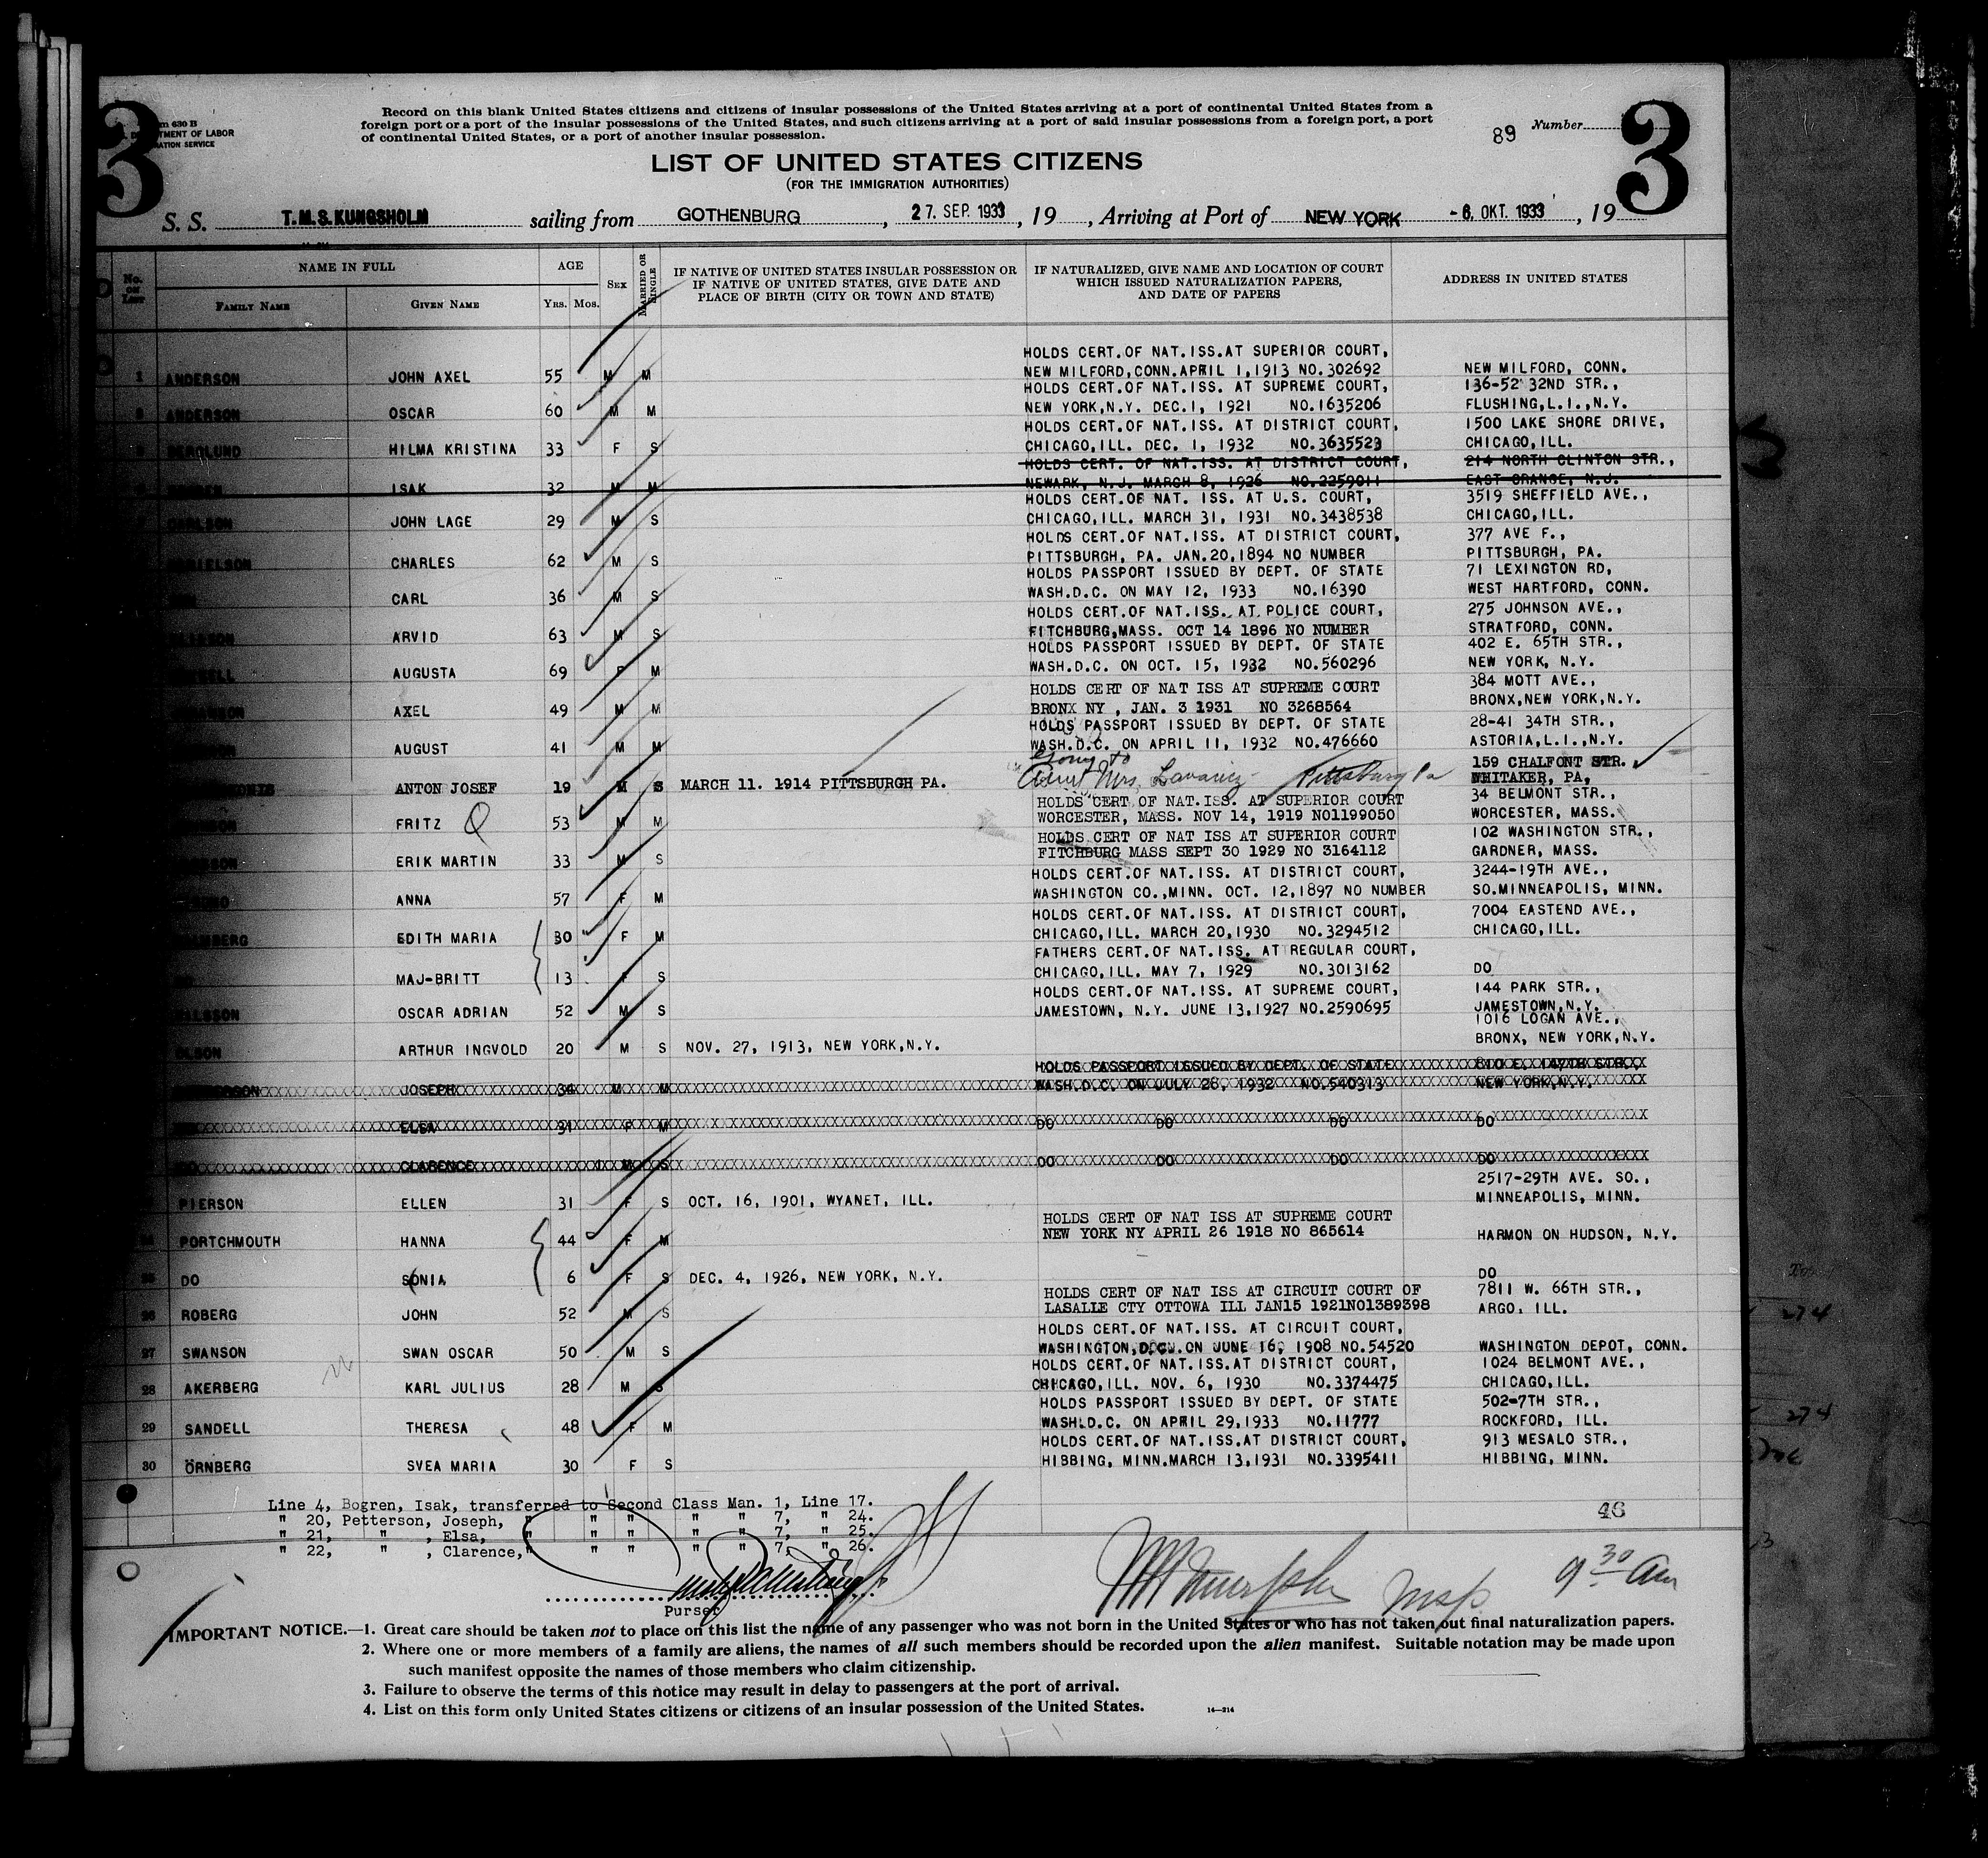 3
m 630 B
TMENT OF LABOR
ATION SERVICE
Record on this blank United States citizens and citizens of insular possessions of the United States arriving at a port of continental United States from a
foreign port or a port of the insular possessions of the United States, and such citizens arriving at a port of said insular possessions from a foreign port, a port
of continental United States, or a port of another insular possession.
89 Number
3
LIST OF UNITED STATES CITIZENS
(FOR THE IMMIGRATION AUTHORITIES)
S. S. T.M.S. KUNGSHOLM sailing from GOTHENBURG, 27. SEP. 1933, 19, Arriving at Port of NEW YORK -6. OKT. 1933, 19
No. on List
NAME IN FULL
Family Name
Given Name
AGE
Yrs. Mos.
Sex
Married or Single
IF NATIVE OF UNITED STATES INSULAR POSSESSION OR
IF NATIVE OF UNITED STATES, GIVE DATE AND
PLACE OF BIRTH (CITY OR TOWN AND STATE)
IF NATURALIZED, GIVE NAME AND LOCATION OF COURT
WHICH ISSUED NATURALIZATION PAPERS,
AND DATE OF PAPERS
ADDRESS IN UNITED STATES
HOLDS CERT.OF NAT.ISS.AT SUPERIOR COURT,
1 ANDERSON JOHN AXEL 55 M M NEW MILFORD,CONN.APRIL 1,1913 NO.302692 NEW MILFORD, CONN.
HOLDS CERT.OF NAT.ISS. AT SUPREME COURT, 136-52 32ND STR.,
ANDERSON OSCAR 60 M M NEW YORK,N.Y. DEC.1, 1921 NO.1635206 FLUSHING,L.I.,N.Y.
HOLDS CERT.OF NAT.ISS. AT DISTRICT COURT, 1500 LAKE SHORE DRIVE,
BERGLUND HILMA KRISTINA 33 F S CHICAGO,ILL. DEC. 1, 1932 NO.3635523 CHICAGO,ILL.
HOLDS CERT. OF NAT.ISS. AT DISTRICT COURT, 214 NORTH CLINTON STR.,
ISAK 32 M M NEWARK, N.J. MARCH 8, 1926 NO.2259011 EAST ORANGE, N.J.
HOLDS CERT.OF NAT. ISS. AT U.S. COURT, 3519 SHEFFIELD AVE.,
JOHN LAGE 29 M S CHICAGO,ILL. MARCH 31, 1931 NO.3438538 CHICAGO,ILL.
HOLDS CERT.OF NAT.ISS. AT DISTRICT COURT, 377 AVE F.,
CHARLES 62 M S PITTSBURGH, PA. JAN.20,1894 NO NUMBER PITTSBURGH, PA.
HOLDS PASSPORT ISSUED BY DEPT. OF STATE 71 LEXINGTON RD,
CARL 36 M S WASH.D.C. ON MAY 12, 1933 NO.16390 WEST HARTFORD, CONN.
HOLDS CERT.OF NAT.ISS. AT POLICE COURT, 275 JOHNSON AVE.,
ARVID 63 M S FITCHBURG,MASS. OCT 14 1896 NO NUMBER STRATFORD, CONN.
HOLDS PASSPORT ISSUED BY DEPT. OF STATE 402 E. 65TH STR.,
AUGUSTA 69 F M WASH.D.C. ON OCT. 15, 1932 NO.560296 NEW YORK, N.Y.
HOLDS CERT OF NAT ISS AT SUPREME COURT 384 MOTT AVE.,
AXEL 49 M M BRONX NY , JAN. 3 1931 NO 3268564 BRONX,NEW YORK,N.Y.
HOLDS PASSPORT ISSUED BY DEPT. OF STATE 28-41 34TH STR.,
AUGUST 41 M M WASH.D.C. ON APRIL 11, 1932 NO.476660 ASTORIA,L.I.,N.Y.
going to 159 CHALFONT STR.
ANTON JOSEF 19 M S MARCH 11. 1914 PITTSBURGH PA. Aunt Mrs. Pittsburg Pa WHITAKER, PA,
HOLDS CERT OF NAT.ISS. AT SUPERIOR COURT 34 BELMONT STR.,
FRITZ 53 M M WORCESTER, MASS. NOV 14, 1919 NO1199050 WORCESTER, MASS.
HOLDS CERT OF NAT ISS AT SUPERIOR COURT 102 WASHINGTON STR.,
ERIK MARTIN 33 M S FITCHBURG MASS SEPT 30 1929 NO 3164112 GARDNER, MASS.
HOLDS CERT.OF NAT.ISS. AT DISTRICT COURT, 3244-19TH AVE.,
ANNA 57 F M WASHINGTON CO.,MINN. OCT. 12,1897 NO NUMBER SO.MINNEAPOLIS, MINN.
HOLDS CERT.OF NAT.ISS. AT DISTRICT COURT, 7004 EASTEND AVE.,
EDITH MARIA 30 F M CHICAGO,ILL. MARCH 20,1930 NO.3294512 CHICAGO,ILL.
FATHERS CERT.OF NAT.ISS. AT REGULAR COURT,
MAJ-BRITT 13 F S CHICAGO,ILL. MAY 7, 1929 NO.3013162 DO
HOLDS CERT.OF NAT.ISS. AT SUPREME COURT, 144 PARK STR.,
OSCAR ADRIAN 52 M S JAMESTOWN, N.Y. JUNE 13,1927 NO.2590695 JAMESTOWN,N.Y.
1016 LOGAN AVE.,
OLSON ARTHUR INGVOLD 20 M S NOV. 27, 1913, NEW YORK,N.Y. BRONX, NEW YORK,N.Y.
HOLDS PASSPORT ISSUED BY DEPT. OF STATE 810 E. 147TH STR.,
JOSEPH 34 M M WASH.D.C. ON JULY 28, 1932 NO.540313 NEW YORK,N.Y.
ELSA 31 F M DO DO DO DO
DO CLARENCE 1 M S DO DO DO DO
2517-29TH AVE. SO.,
PIERSON ELLEN 31 F S OCT. 16, 1901, WYANET, ILL. MINNEAPOLIS, MINN.
HOLDS CERT OF NAT ISS AT SUPREME COURT
PORTCHMOUTH HANNA 44 F M NEW YORK NY APRIL 26 1918 NO 865614 HARMON ON HUDSON, N.Y.
25 DO SONIA 6 F S DEC. 4, 1926, NEW YORK, N.Y. DO
HOLDS CERT OF NAT ISS AT CIRCUIT COURT OF 7811 W. 66TH STR.,
26 ROBERG JOHN 52 M S LASALLE CTY OTTOWA ILL JAN15 1921NO1389398 ARGO, ILL.
HOLDS CERT.OF NAT.ISS. AT CIRCUIT COURT,
27 SWANSON SWAN OSCAR 50 M S WASHINGTON,D.C. ON JUNE 16, 1908 NO.54520 WASHINGTON DEPOT, CONN.
HOLDS CERT.OF NAT.ISS.AT DISTRICT COURT, 1024 BELMONT AVE.,
28 AKERBERG KARL JULIUS 28 M S CHICAGO,ILL. NOV. 6, 1930 NO.3374475 CHICAGO,ILL.
HOLDS PASSPORT ISSUED BY DEPT. OF STATE 502-7TH STR.,
29 SANDELL THERESA 48 F M WASH.D.C. ON APRIL 29,1933 NO.11777 ROCKFORD, ILL.
HOLDS CERT.OF NAT.ISS.AT DISTRICT COURT, 913 MESALO STR.,
30 ÖRNBERG SVEA MARIA 30 F S HIBBING, MINN.MARCH 13,1931 NO.3395411 HIBBING, MINN.
Line 4, Bogren, Isak, transferred to Second Class Man. 1, Line 17.
" 20, Petterson, Joseph, " " " " " 7, " 24.
" 21, " , Elsa, " " " " " 7, " 25.
" 22, " , Clarence, " " " " " 7, " 26.
46
9 30 am
Purser
IMPORTANT NOTICE.—1. Great care should be taken not to place on this list the name of any passenger who was not born in the United States or who has not taken out final naturalization papers.
2. Where one or more members of a family are aliens, the names of all such members should be recorded upon the alien manifest. Suitable notation may be made upon
such manifest opposite the names of those members who claim citizenship.
3. Failure to observe the terms of this notice may result in delay to passengers at the port of arrival.
4. List on this form only United States citizens or citizens of an insular possession of the United States.
14—214
274
274